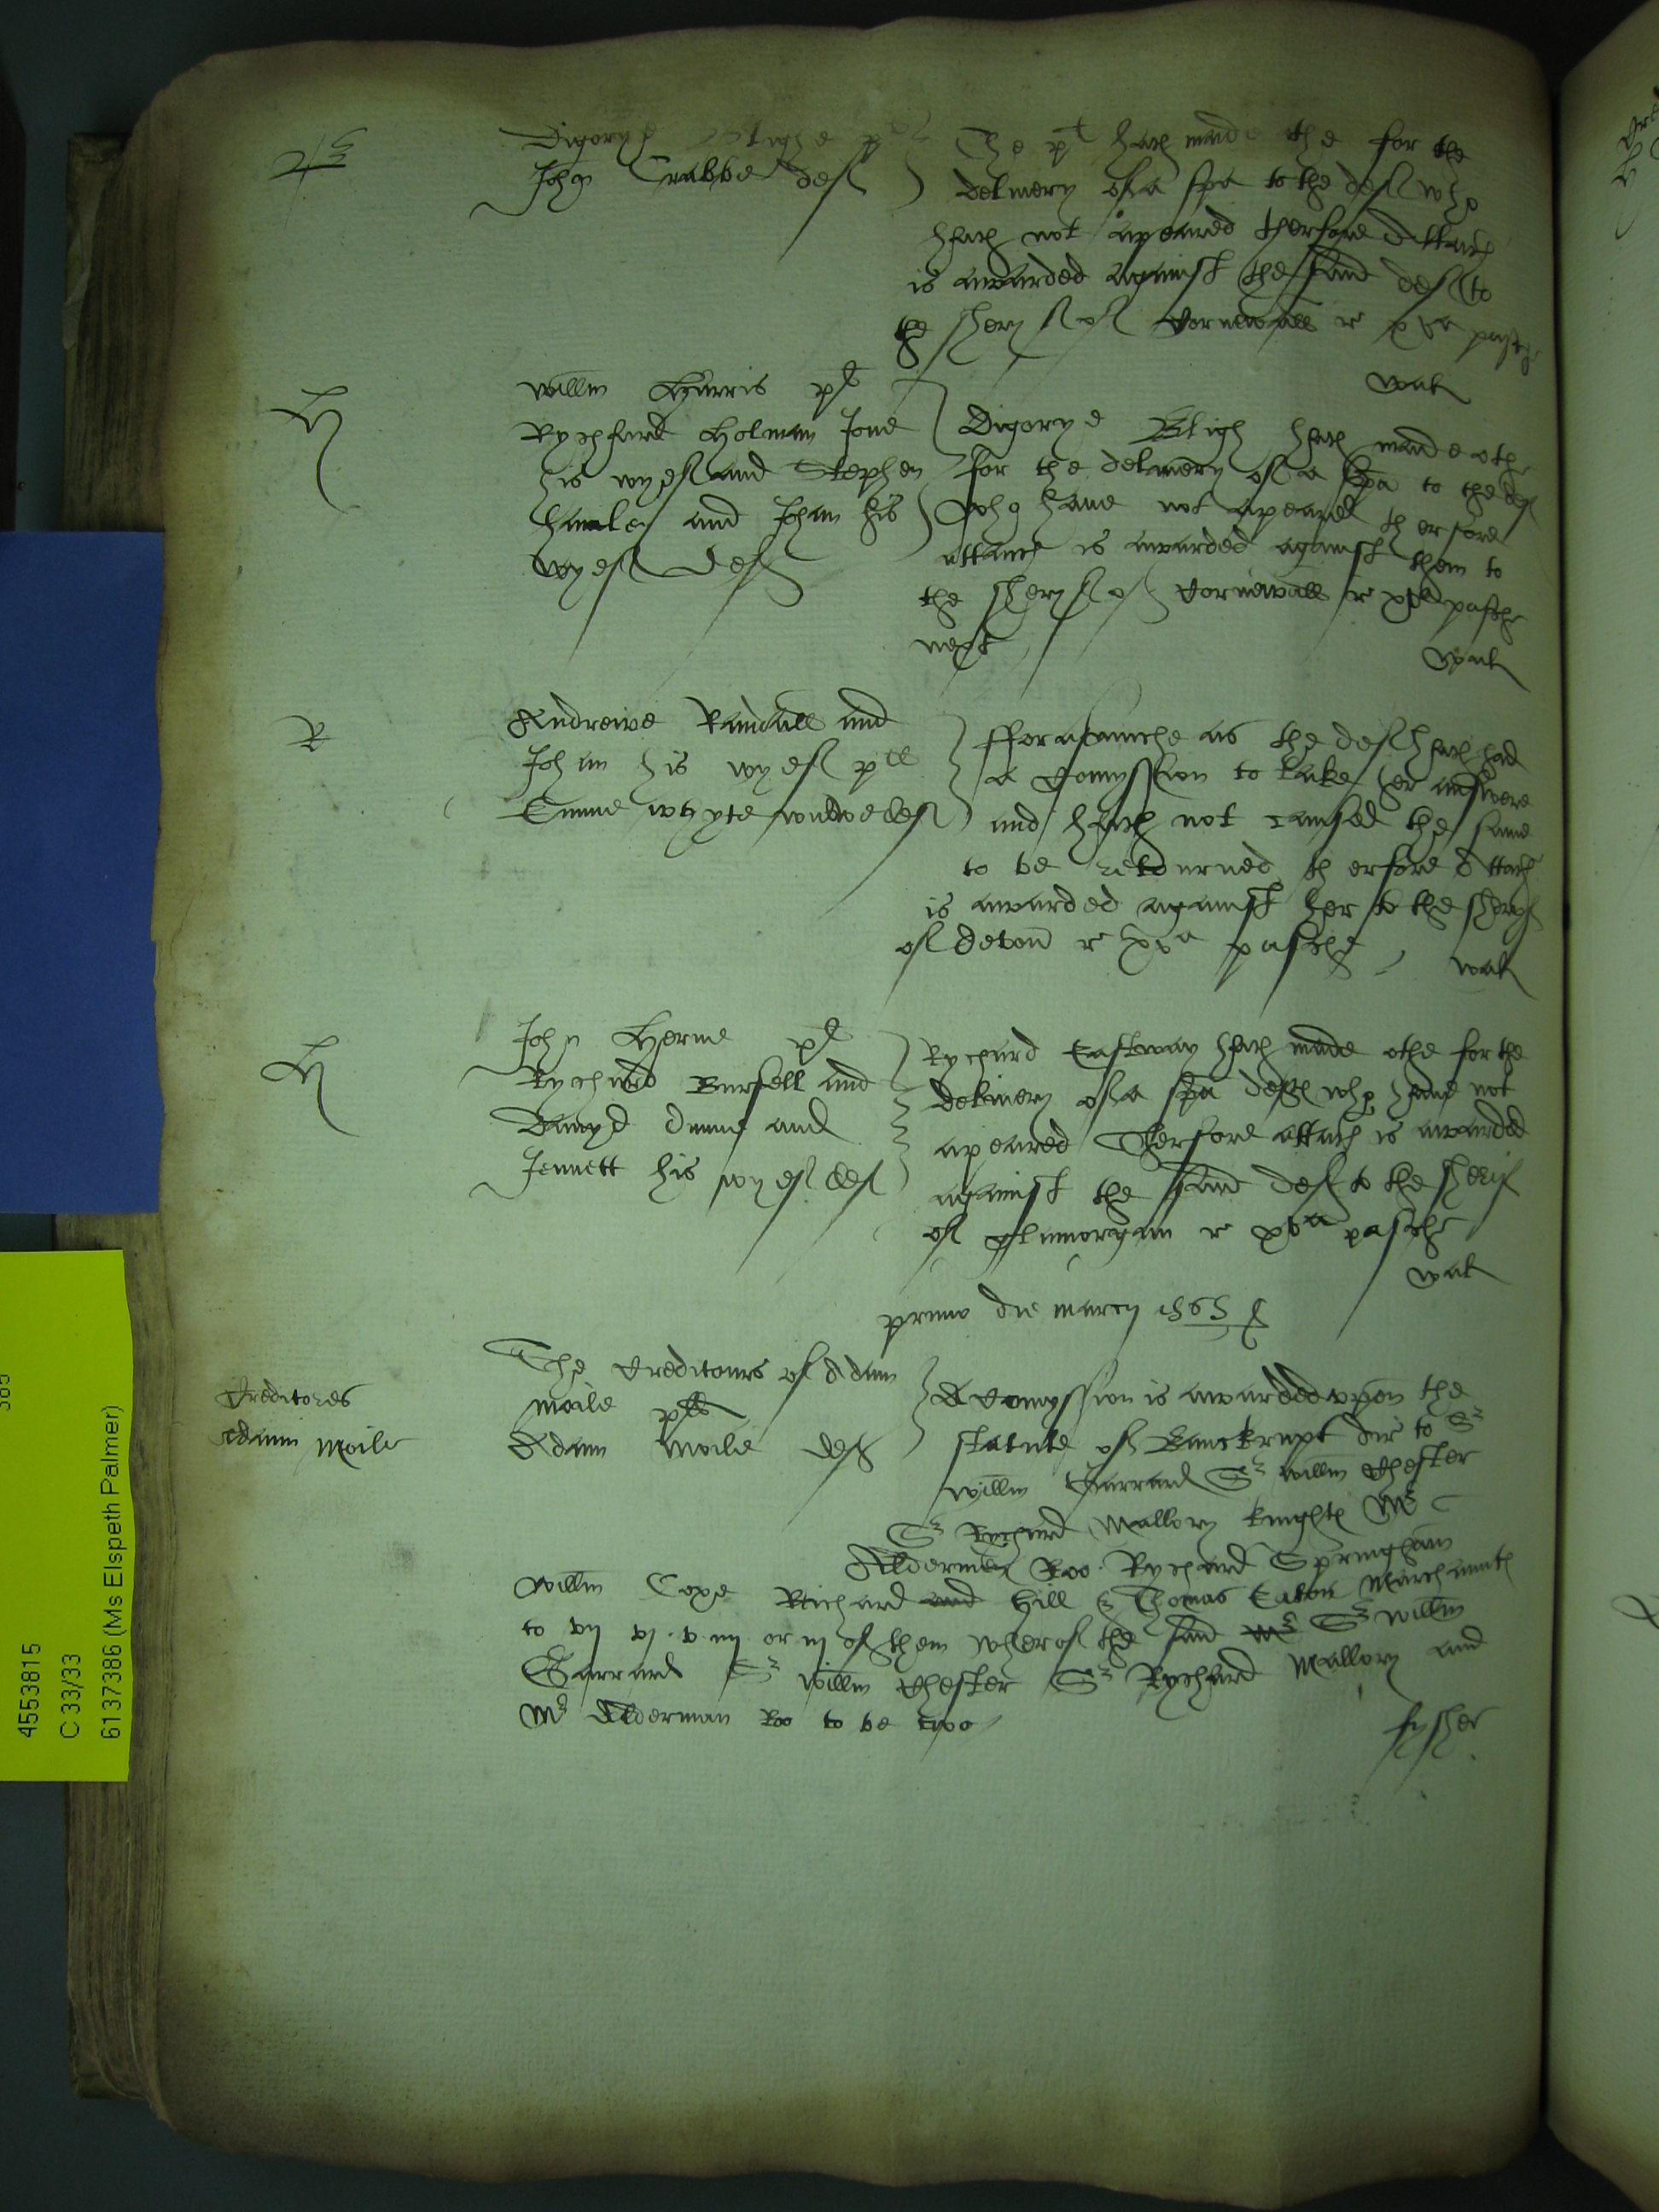 Digorye Blighe pl
John Crabbe def
The pl hath made othe for the
delivery of a spa to the def who
hath not apeared therfore Attach
is awarded against the said def to
the sheryf of Cornewall r xva pasche
wak
H
Willm Harris pl
Rychard Holman Jone
his wyef and Stephen
hamley and Johan his
wyef def
Digorye Bligh hath made othe
for the delivery of a spa to the def
who have not apeared therfore
attach is awarded against them to
the sheryf of Cornewall r xva pasche
next
wak
R
Andrewe Randall and
Johan his wyef pll
Emme whyte widwe def
fforasmuche as the def hath had
a Comyssion to take her answere
and hath not caused the same
to be retourned therfore Attach
is awarded against her to the sheryf
of devon r xva pasche
wak
H
John Herne pl
Rychard Bursell and
Davyd and
Jennett his wyef def
Rychard Eastway hath made othe for the
delivery of a spa def who have not
apeared Therfore attach is awarded
against the said def to the sherif
of glamorgan r xva pasche
wak
primo die marcij 1565
Creditores
Adam Moile
The Creditours of Adam
moile pll
Adam Moile def
A Comyssion is awarded upon the
statute of Banckrupt dir to Sr
Willm Garrard Sr Willm Chester
Sr Rychard Mallory knights Mr
Alderman Roo Rychard Springham
Willm Coxe Richard and Hill & Thomas Eaton Marchaunts
to vij vj v iiij or iij of them wherof the said Mr Sr Willm
Garrard Sr Willm Chester Sr Rychard Mallory and
Mr Alderman Roo to be two
fysher
45538815
C 33/33
6137386 (Ms Elspeth Palmer)